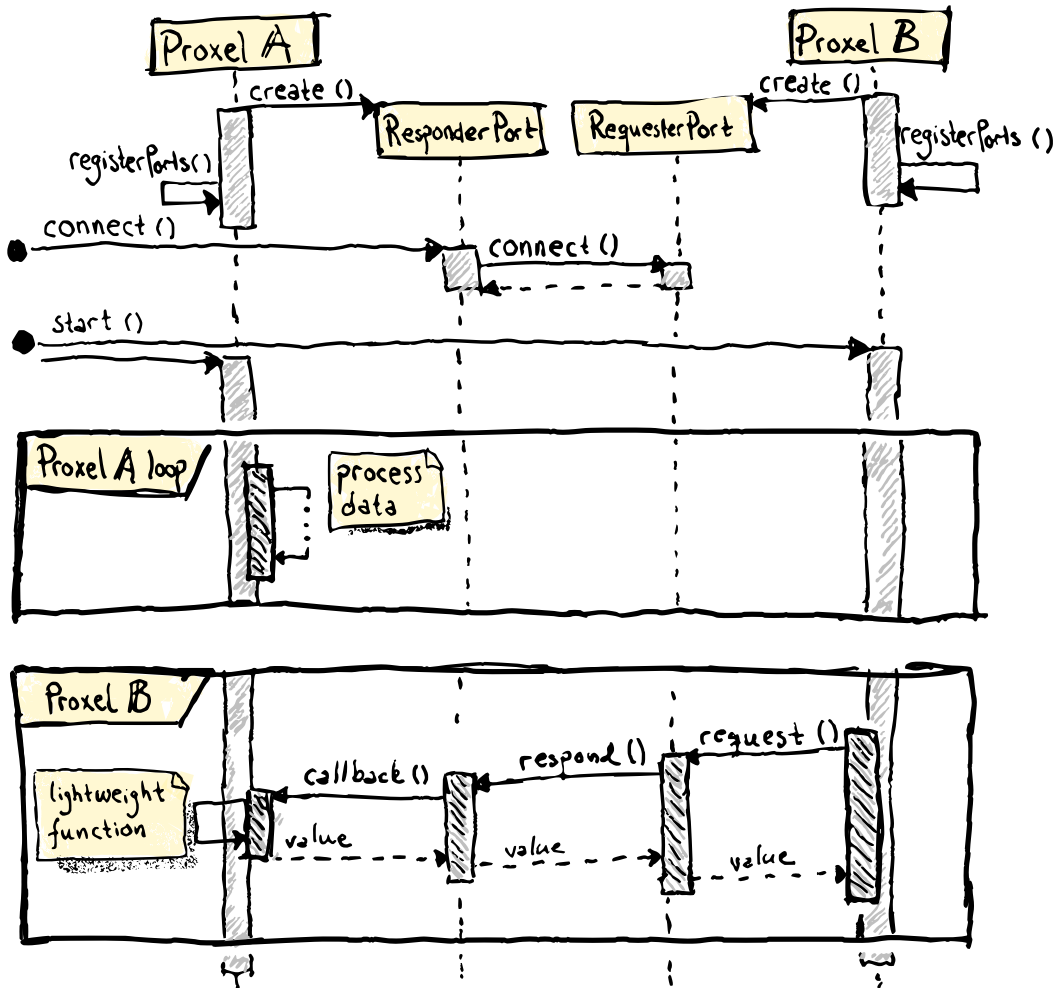 Proxel A
Proxel B
create ()
create ()
ResponderPort
RequesterPort
registerPorts()
registerPorts ()
connect ()
connect ()
start ()
Proxel A loop
process
data
Proxel B
request ()
respond ()
callback ()
lightweight
function
value
value
value